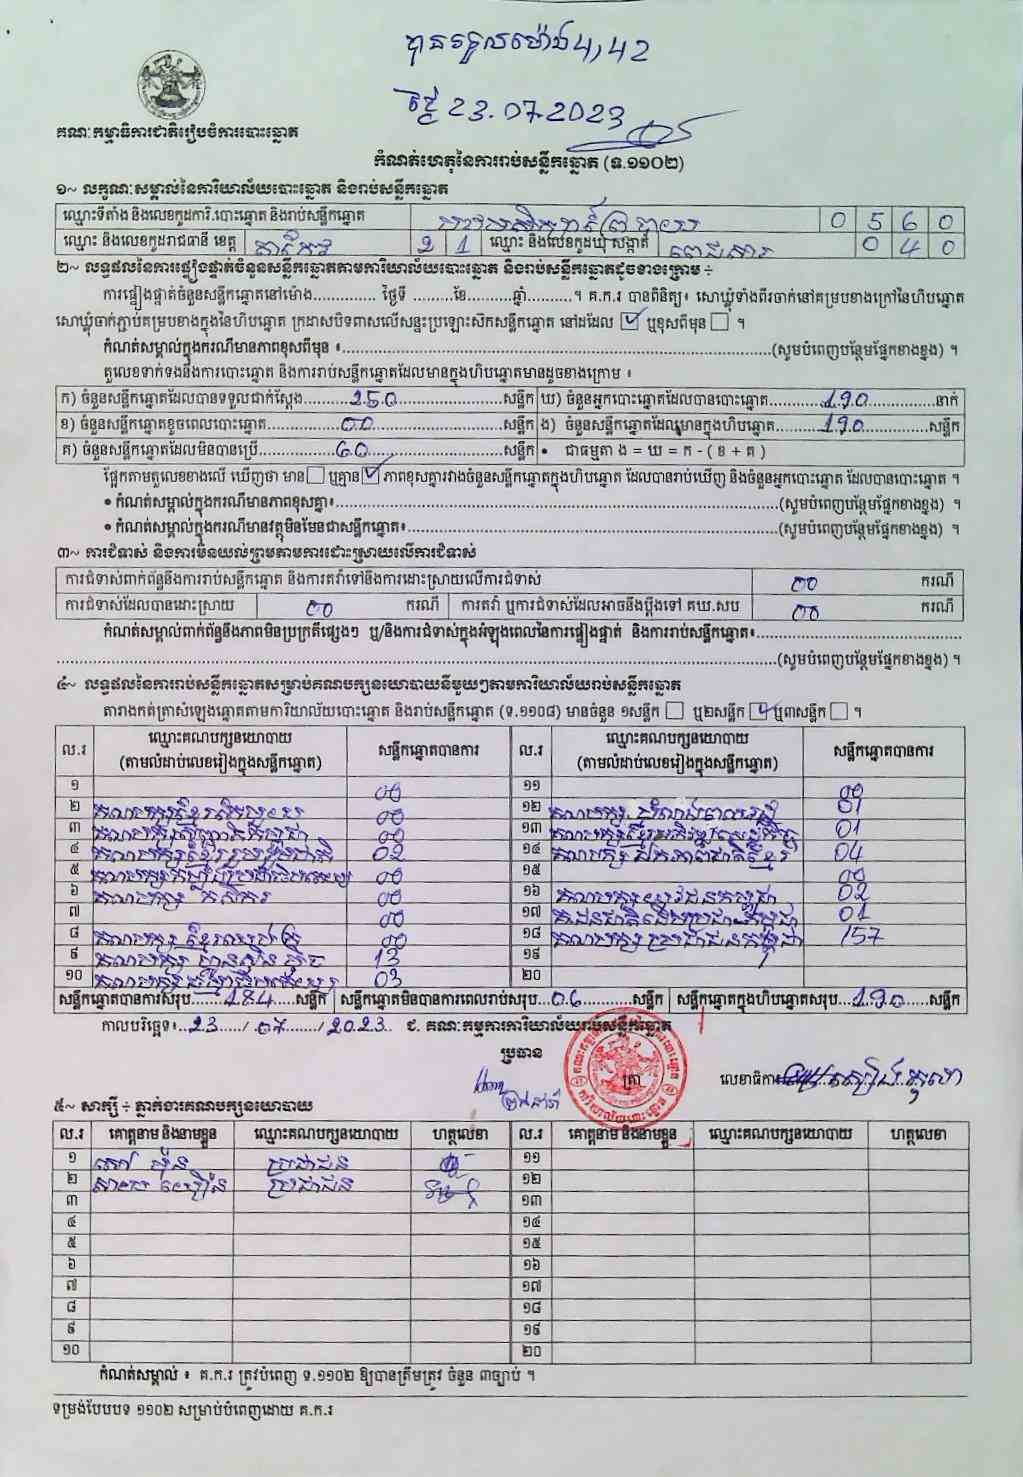 បានទទួលម៉ោង 4,42
ថ្ងៃ 23.07.2023
គណៈកម្មាធិការជាតិរៀបចំការបោះឆ្នោត
កំណត់ហេតុនៃការរាប់សន្លឹកឆ្នោត (ទ.១១០២)
១~ លក្ខណៈសម្គាល់នៃការិយាល័យបោះឆ្នោត និងរាប់សន្លឹកឆ្នោត
ឈ្មោះទីតាំង និងលេខកូដការិ.បោះឆ្នោត និងរាប់សន្លឹកឆ្នោត 0 5 6 0
ឈ្មោះ និងលេខកូដរាជធានី ខេត្ត តាកែវ 2 1 ឈ្មោះ និងលេខកូដឃុំ សង្កាត់ ពេជសារ 0 4 0
២~ លទ្ធផលនៃការផ្ទៀងផ្ទាត់ចំនួនសន្លឹកឆ្នោតតាមការិយាល័យបោះឆ្នោត និងរាប់សន្លឹកឆ្នោតដូចខាងក្រោម ÷
ការផ្ទៀងផ្ទាត់ចំនួនសន្លឹកឆ្នោតនៅម៉ោង.............. ថ្ងៃទី .........ខែ..........ឆ្នាំ..........។ គ.ក.រ បានពិនិត្យ៖ សោឃ្លុំទាំងពីរចាក់នៅគម្របខាងក្រៅនៃហិបឆ្នោត
សោឃ្លុំចាក់ភ្ជាប់គម្របខាងក្នុងនៃហិបឆ្នោត ក្រដាសបិទពាសលើសន្ទះប្រឡោះសឹកសន្លឹកឆ្នោត នៅដដែល ☑ ឬខុសពីមុន ☐ ។
កំណត់សម្គាល់ក្នុងករណីមានភាពខុសពីមុន ៖..........(សូមបំពេញបន្ថែមផ្នែកខាងខ្នង) ។
តួលេខទាក់ទងនឹងការបោះឆ្នោត និងការរាប់សន្លឹកឆ្នោតដែលមានក្នុងហិបឆ្នោតមានដូចខាងក្រោម ៖
ក) ចំនួនសន្លឹកឆ្នោតដែលបានទទួលជាក់ស្ដែង..........250..........សន្លឹក ឃ) ចំនួនអ្នកបោះឆ្នោតដែលបានបោះឆ្នោត..........190..........នាក់
ខ) ចំនួនសន្លឹកឆ្នោតខូចពេលបោះឆ្នោត..........00..........សន្លឹក ង) ចំនួនសន្លឹកឆ្នោតដែលមានក្នុងហិបឆ្នោត..........190..........សន្លឹក
គ) ចំនួនសន្លឹកឆ្នោតដែលមិនបានប្រើ..........60..........សន្លឹក • ជាធម្មតា ង = ឃ = ក - ( ខ + គ )
ផ្អែកតាមតួលេខខាងលើ ឃើញថា មាន ☐ ឬគ្មាន ☑ ភាពខុសគ្នារវាងចំនួនសន្លឹកឆ្នោតក្នុងហិបឆ្នោត ដែលបានរាប់ឃើញ និងចំនួនអ្នកបោះឆ្នោត ដែលបានបោះឆ្នោត ។
• កំណត់សម្គាល់ក្នុងករណីមានភាពខុសគ្នា៖..........(សូមបំពេញបន្ថែមផ្នែកខាងខ្នង) ។
• កំណត់សម្គាល់ក្នុងករណីមានវត្ថុមិនមែនជាសន្លឹកឆ្នោត៖..........(សូមបំពេញបន្ថែមផ្នែកខាងខ្នង) ។
៣~ ការជំទាស់ និងការមិនយល់ព្រមតាមការដោះស្រាយលើការជំទាស់
ការជំទាស់ពាក់ព័ន្ធនឹងការរាប់សន្លឹកឆ្នោត និងការតវ៉ាទៅនឹងការដោះស្រាយលើការជំទាស់ 00 ករណី
ការជំទាស់ដែលបានដោះស្រាយ 00 ករណី ការតវ៉ា ឬការជំទាស់ដែលអាចនឹងប្ដឹងទៅ គឃ.សប 00 ករណី
កំណត់សម្គាល់ពាក់ព័ន្ធនឹងភាពមិនប្រក្រតីផ្សេងៗ ឬ/និងការជំទាស់ក្នុងអំឡុងពេលនៃការផ្ទៀងផ្ទាត់ និងការរាប់សន្លឹកឆ្នោត៖..........
..........(សូមបំពេញបន្ថែមផ្នែកខាងខ្នង) ។
៤~ លទ្ធផលនៃការរាប់សន្លឹកឆ្នោតសម្រាប់គណបក្សនយោបាយនីមួយៗតាមការិយាល័យរាប់សន្លឹកឆ្នោត
តារាងកត់ត្រាសំឡេងឆ្នោតតាមការិយាល័យបោះឆ្នោត និងរាប់សន្លឹកឆ្នោត (ទ.១១០៨) មានចំនួន ១សន្លឹក ☐ ឬ២សន្លឹក ☑ ឬ៣សន្លឹក ☐ ។
ល.រ ឈ្មោះគណបក្សនយោបាយ (តាមលំដាប់លេខរៀងក្នុងសន្លឹកឆ្នោត) សន្លឹកឆ្នោតបានការ ល.រ ឈ្មោះគណបក្សនយោបាយ (តាមលំដាប់លេខរៀងក្នុងសន្លឹកឆ្នោត) សន្លឹកឆ្នោតបានការ
១ 00 ១១ 00
២ 00 ១២ 01
៣ 00 ១៣ 01
៤ គណបក្សខ្មែររួបរួមជាតិ 02 ១៤ 04
៥ 00 ១៥ 00
៦ គណបក្ស កសិករ 00 ១៦ គណបក្សយុវជនកម្ពុជា 02
៧ 00 ១៧ 01
៨ គណបក្ស ខ្មែរឈប់ក្រ 00 ១៨ គណបក្ស ប្រជាជនកម្ពុជា 157
៩ គណបក្ស ហ៊្វុនស៊ិនប៉ិច 13 ១៩
១០ 03 ២០
សន្លឹកឆ្នោតបានការសរុប......184.....សន្លឹក សន្លឹកឆ្នោតមិនបានការពេលរាប់សរុប...06...........សន្លឹក សន្លឹកឆ្នោតក្នុងហិបឆ្នោតសរុប...190.....សន្លឹក
កាលបរិច្ឆេទ៖...23...../...07......./...2023.. ជ. គណៈកម្មការការិយាល័យរាប់សន្លឹកឆ្នោត
ប្រធាន
ត្រា លេខាធិការ
៥~ សាក្សី ÷ ភ្នាក់ងារគណបក្សនយោបាយ
ល.រ គោត្តនាម និងនាមខ្លួន ឈ្មោះគណបក្សនយោបាយ ហត្ថលេខា ល.រ គោត្តនាម និងនាមខ្លួន ឈ្មោះគណបក្សនយោបាយ ហត្ថលេខា
១ ប្រជាជន ១១
២ ប្រជាជន ១២
៣ ១៣
៤ ១៤
៥ ១៥
៦ ១៦
៧ ១៧
៨ ១៨
៩ ១៩
១០ ២០
កំណត់សម្គាល់ ៖ គ.ក.រ ត្រូវបំពេញ ទ.១១០២ ឱ្យបានត្រឹមត្រូវ ចំនួន ៣ច្បាប់ ។
ទម្រង់បែបបទ ១១០២ សម្រាប់បំពេញដោយ គ.ក.រ